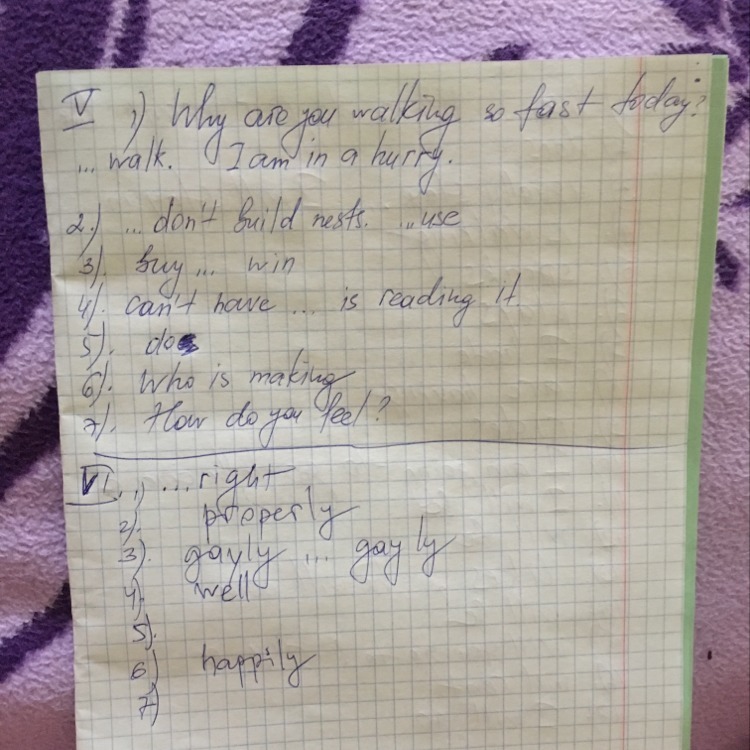 V 1) Why are you walking so fast today?
... walk. I am in a hurry.
2.) ... don't build nests. ...use
3). buy ... win
4). can't have ... is reading it.
5). do
6). Who is making
7). How do you feel?
VI. 1) ...right
2). properly
3). gayly ... gayly
4). well
5).
6) happily
7)